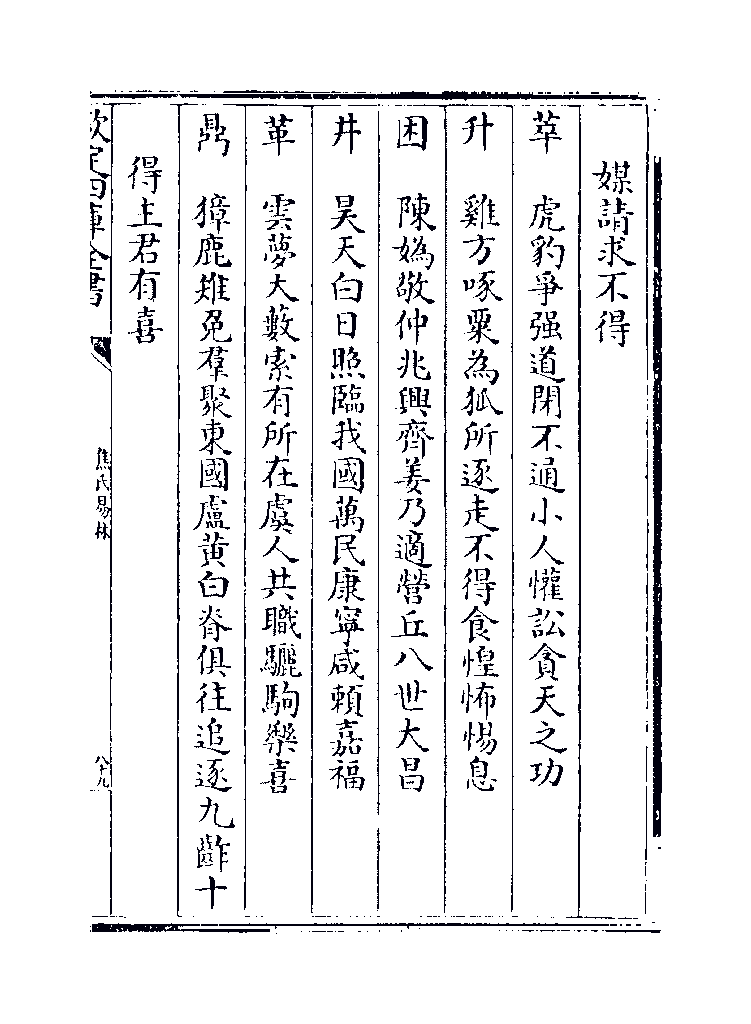 媒請求不得
萃　虎豹爭强道閉不通小人懽訟貪天之功
升　雞方啄粟為狐所逐走不得食惶怖惕息
困　陳媯敬仲兆興齊姜乃適營丘八世大昌
井　昊天白日照臨我國萬民康寧咸賴嘉福
革　雲夢大藪索有所在虞人共職驪駒樂喜
鼎　獐鹿雉兔羣聚東國盧黃白脊俱往追逐九齚十
得主君有喜
欽定四庫全書
焦氏易林
八十九